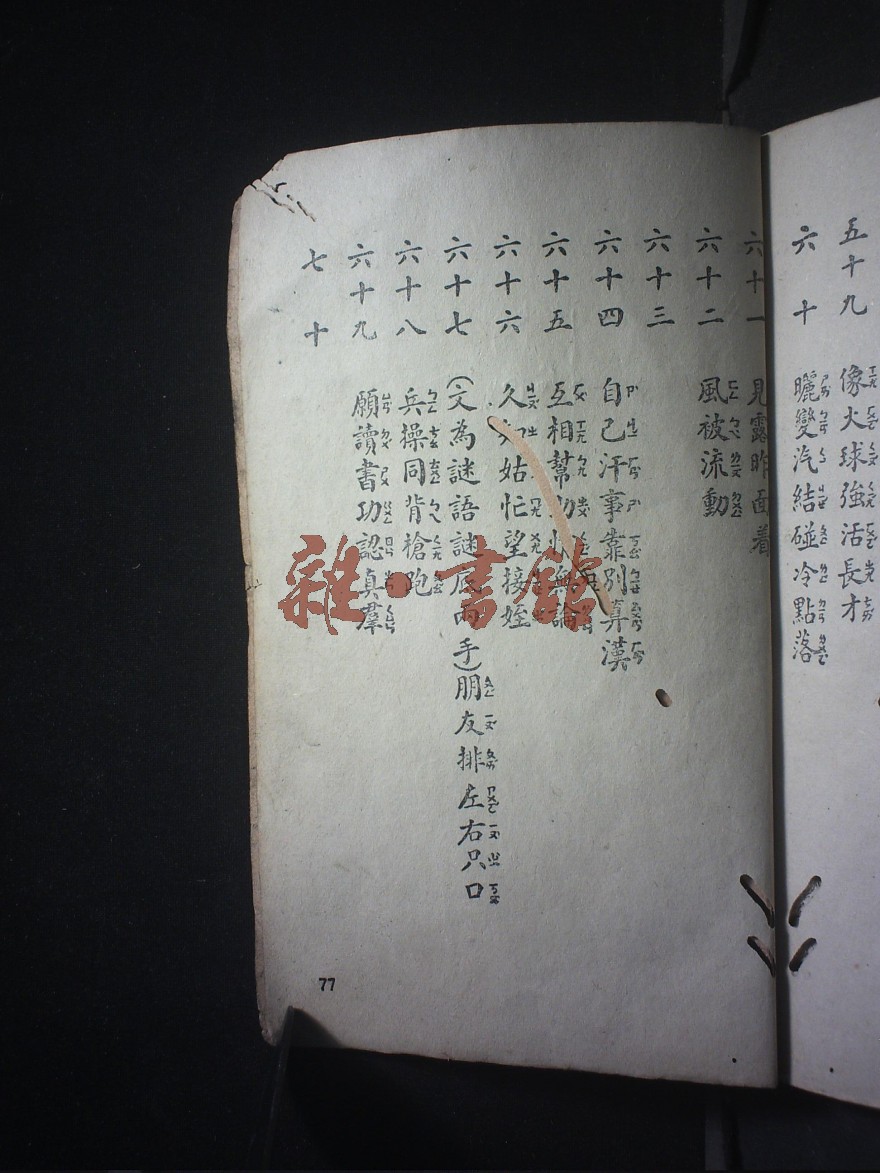 五十九 像火球強活長才
六十 曬變汽結碰冷點落
六十一 見露昨面着
六十二 風被流動
六十三
六十四 自己汗事靠別算漢
六十五 互相幫助無論
六十六 久姑忙望接姪
六十七 (文為謎語謎底兩手)朋友排左右只口
六十八 兵操同背槍跑
六十九 願讀書功認真羣
七十
77
雜·書館